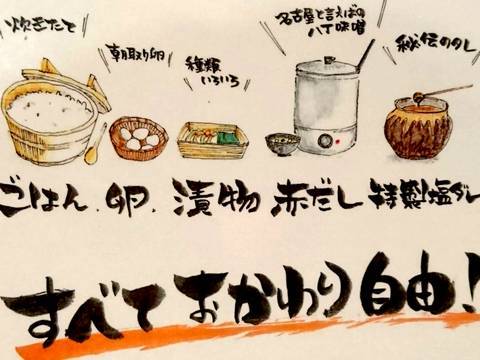 炊きたて
朝取り卵
種類
いろいろ
名古屋と言えばの
八丁味噌
秘伝のタレ
ごはん、卵、漬物 赤だし 特製塩ダレ
すべておかわり自由!